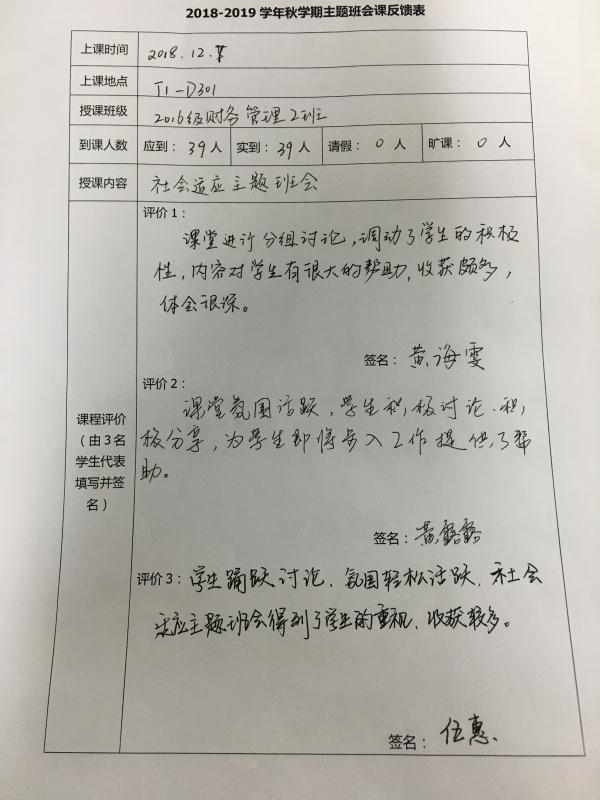 2018-2019 学年秋学期主题班会课反馈表
上课时间 2018.12.
上课地点 J1-D301
授课班级 2016级财务管理2班
到课人数 应到：39人 实到：39人 请假：0人 旷课：0人
授课内容 社会适应主题班会
评价 1：
课堂进行分组讨论，调动了学生的积极
性，内容对学生有很大的帮助，收获颇多，
体会很深。
签名：黄海雯
课程评价
（由 3 名
学生代表
填写并签
名）
评价 2：
课堂氛围活跃，学生积极讨论、积
极分享，为学生即将步入工作提供了帮
助。
签名：黄露露
评价 3：学生踊跃讨论、氛围轻松活跃，社会
适应主题班会得到了学生的重视，收获较多。
签名：伍惠